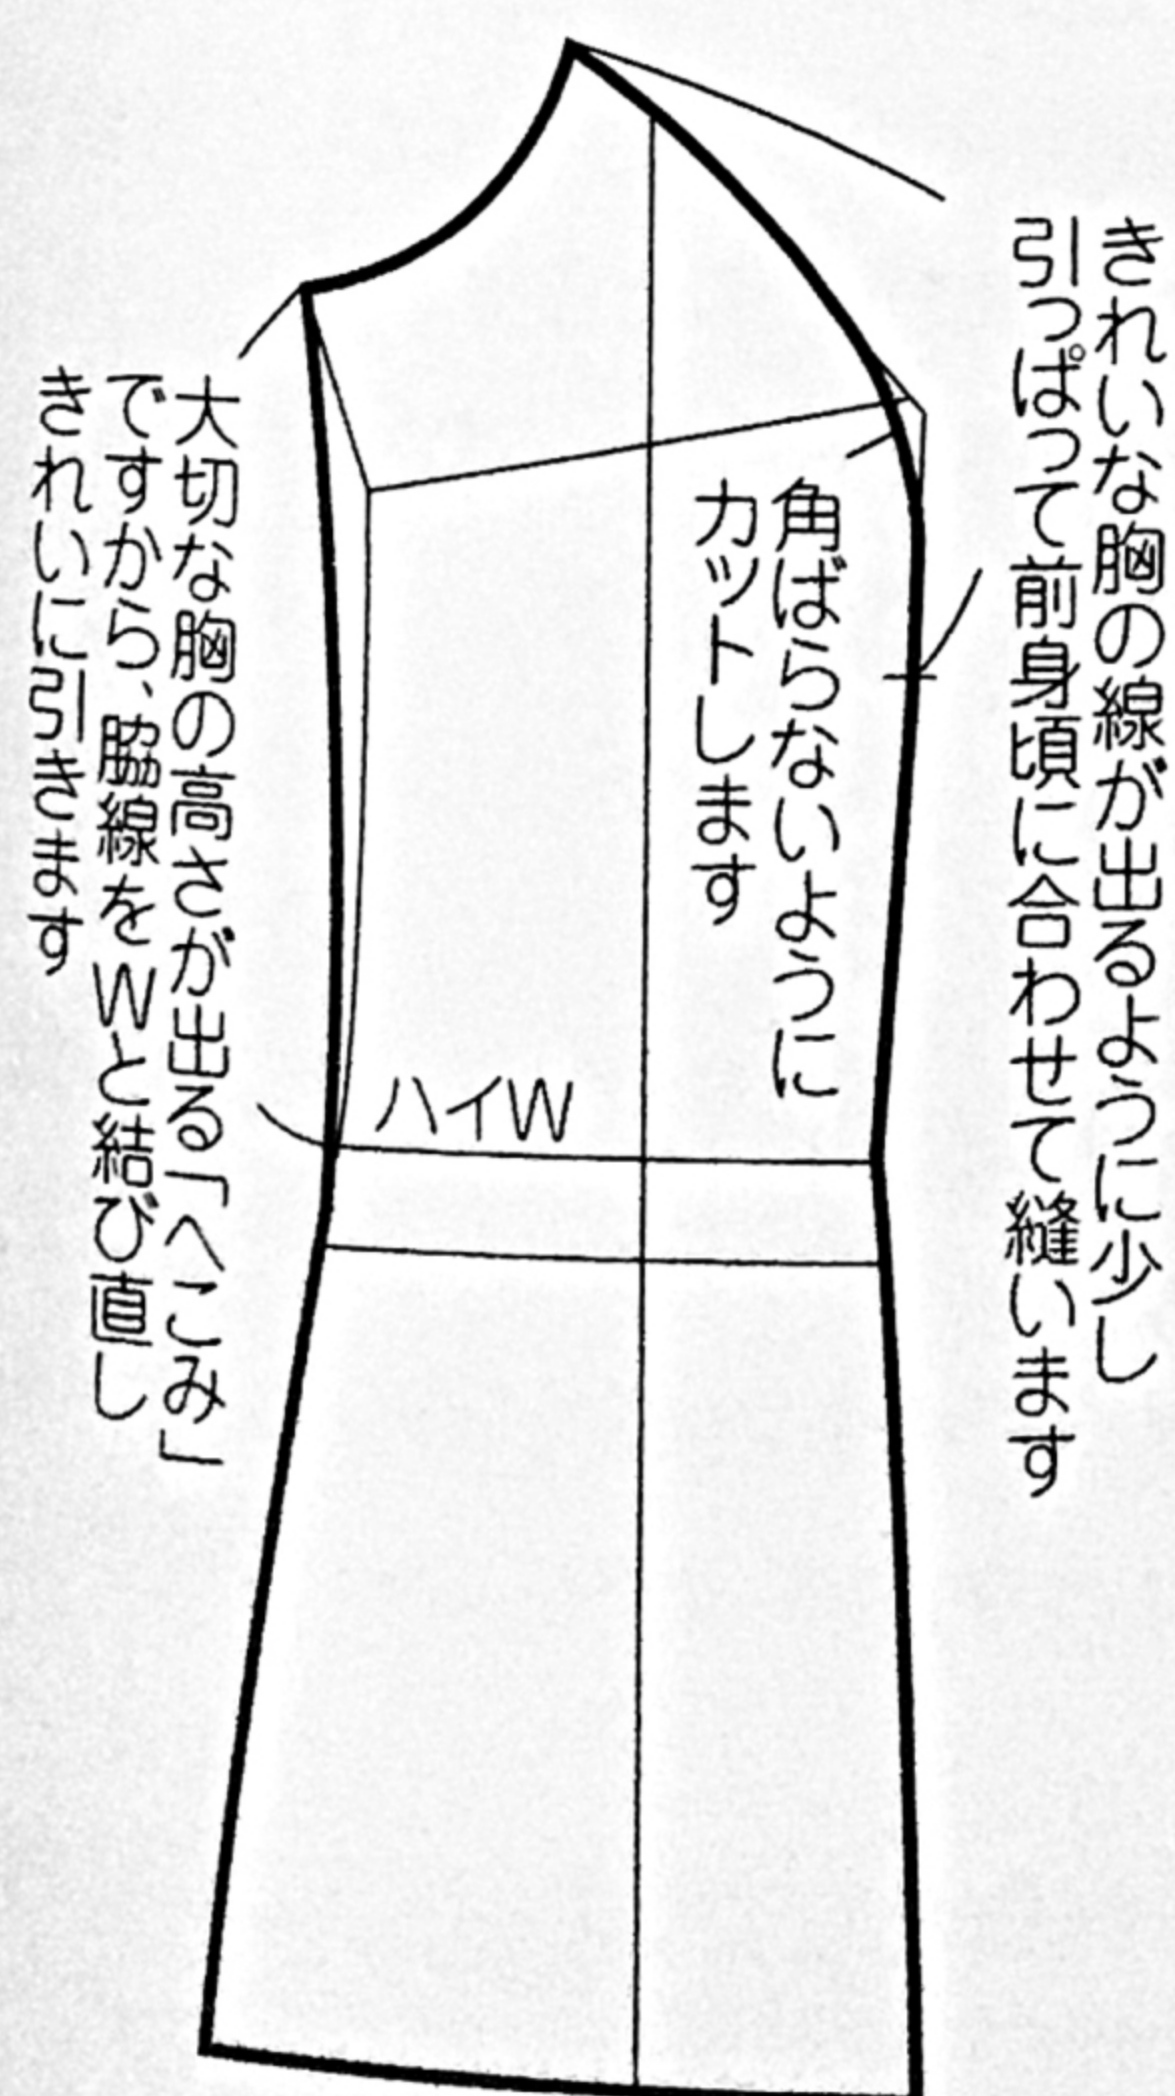 きれいな胸の線が出るように少し
引っぱって前身頃に合わせて縫います
角ばらないように
カットします
ハイW
大切な胸の高さが出る「へこみ」
ですから、脇線をWと結び直し
きれいに引きます